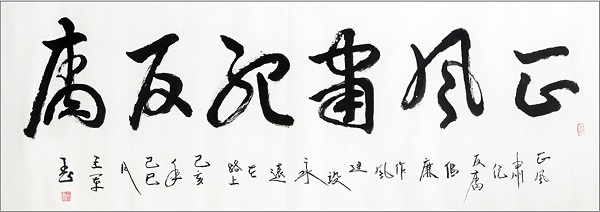 正风肃纪反腐
正風肃纪反腐倡廉作風建设永遠在路上己亥年己巳月王军书